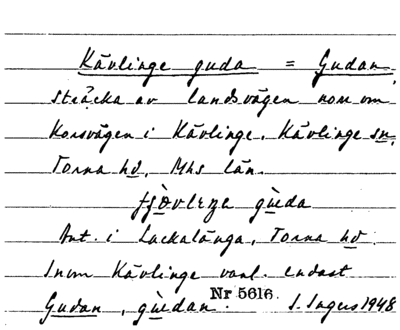 Kävlinge guda = Gudan,
sträcka av landsvägen norr om
Korsvägen i Kävlinge. Kävlinge sn,
Torna hd, Mhs län.
gùda
Ant. i Lackalänga, Torna hd.
Inom Kävlinge vanl. endast
Gudan, gùdan.
Nr 5616. I. Ingers 1948